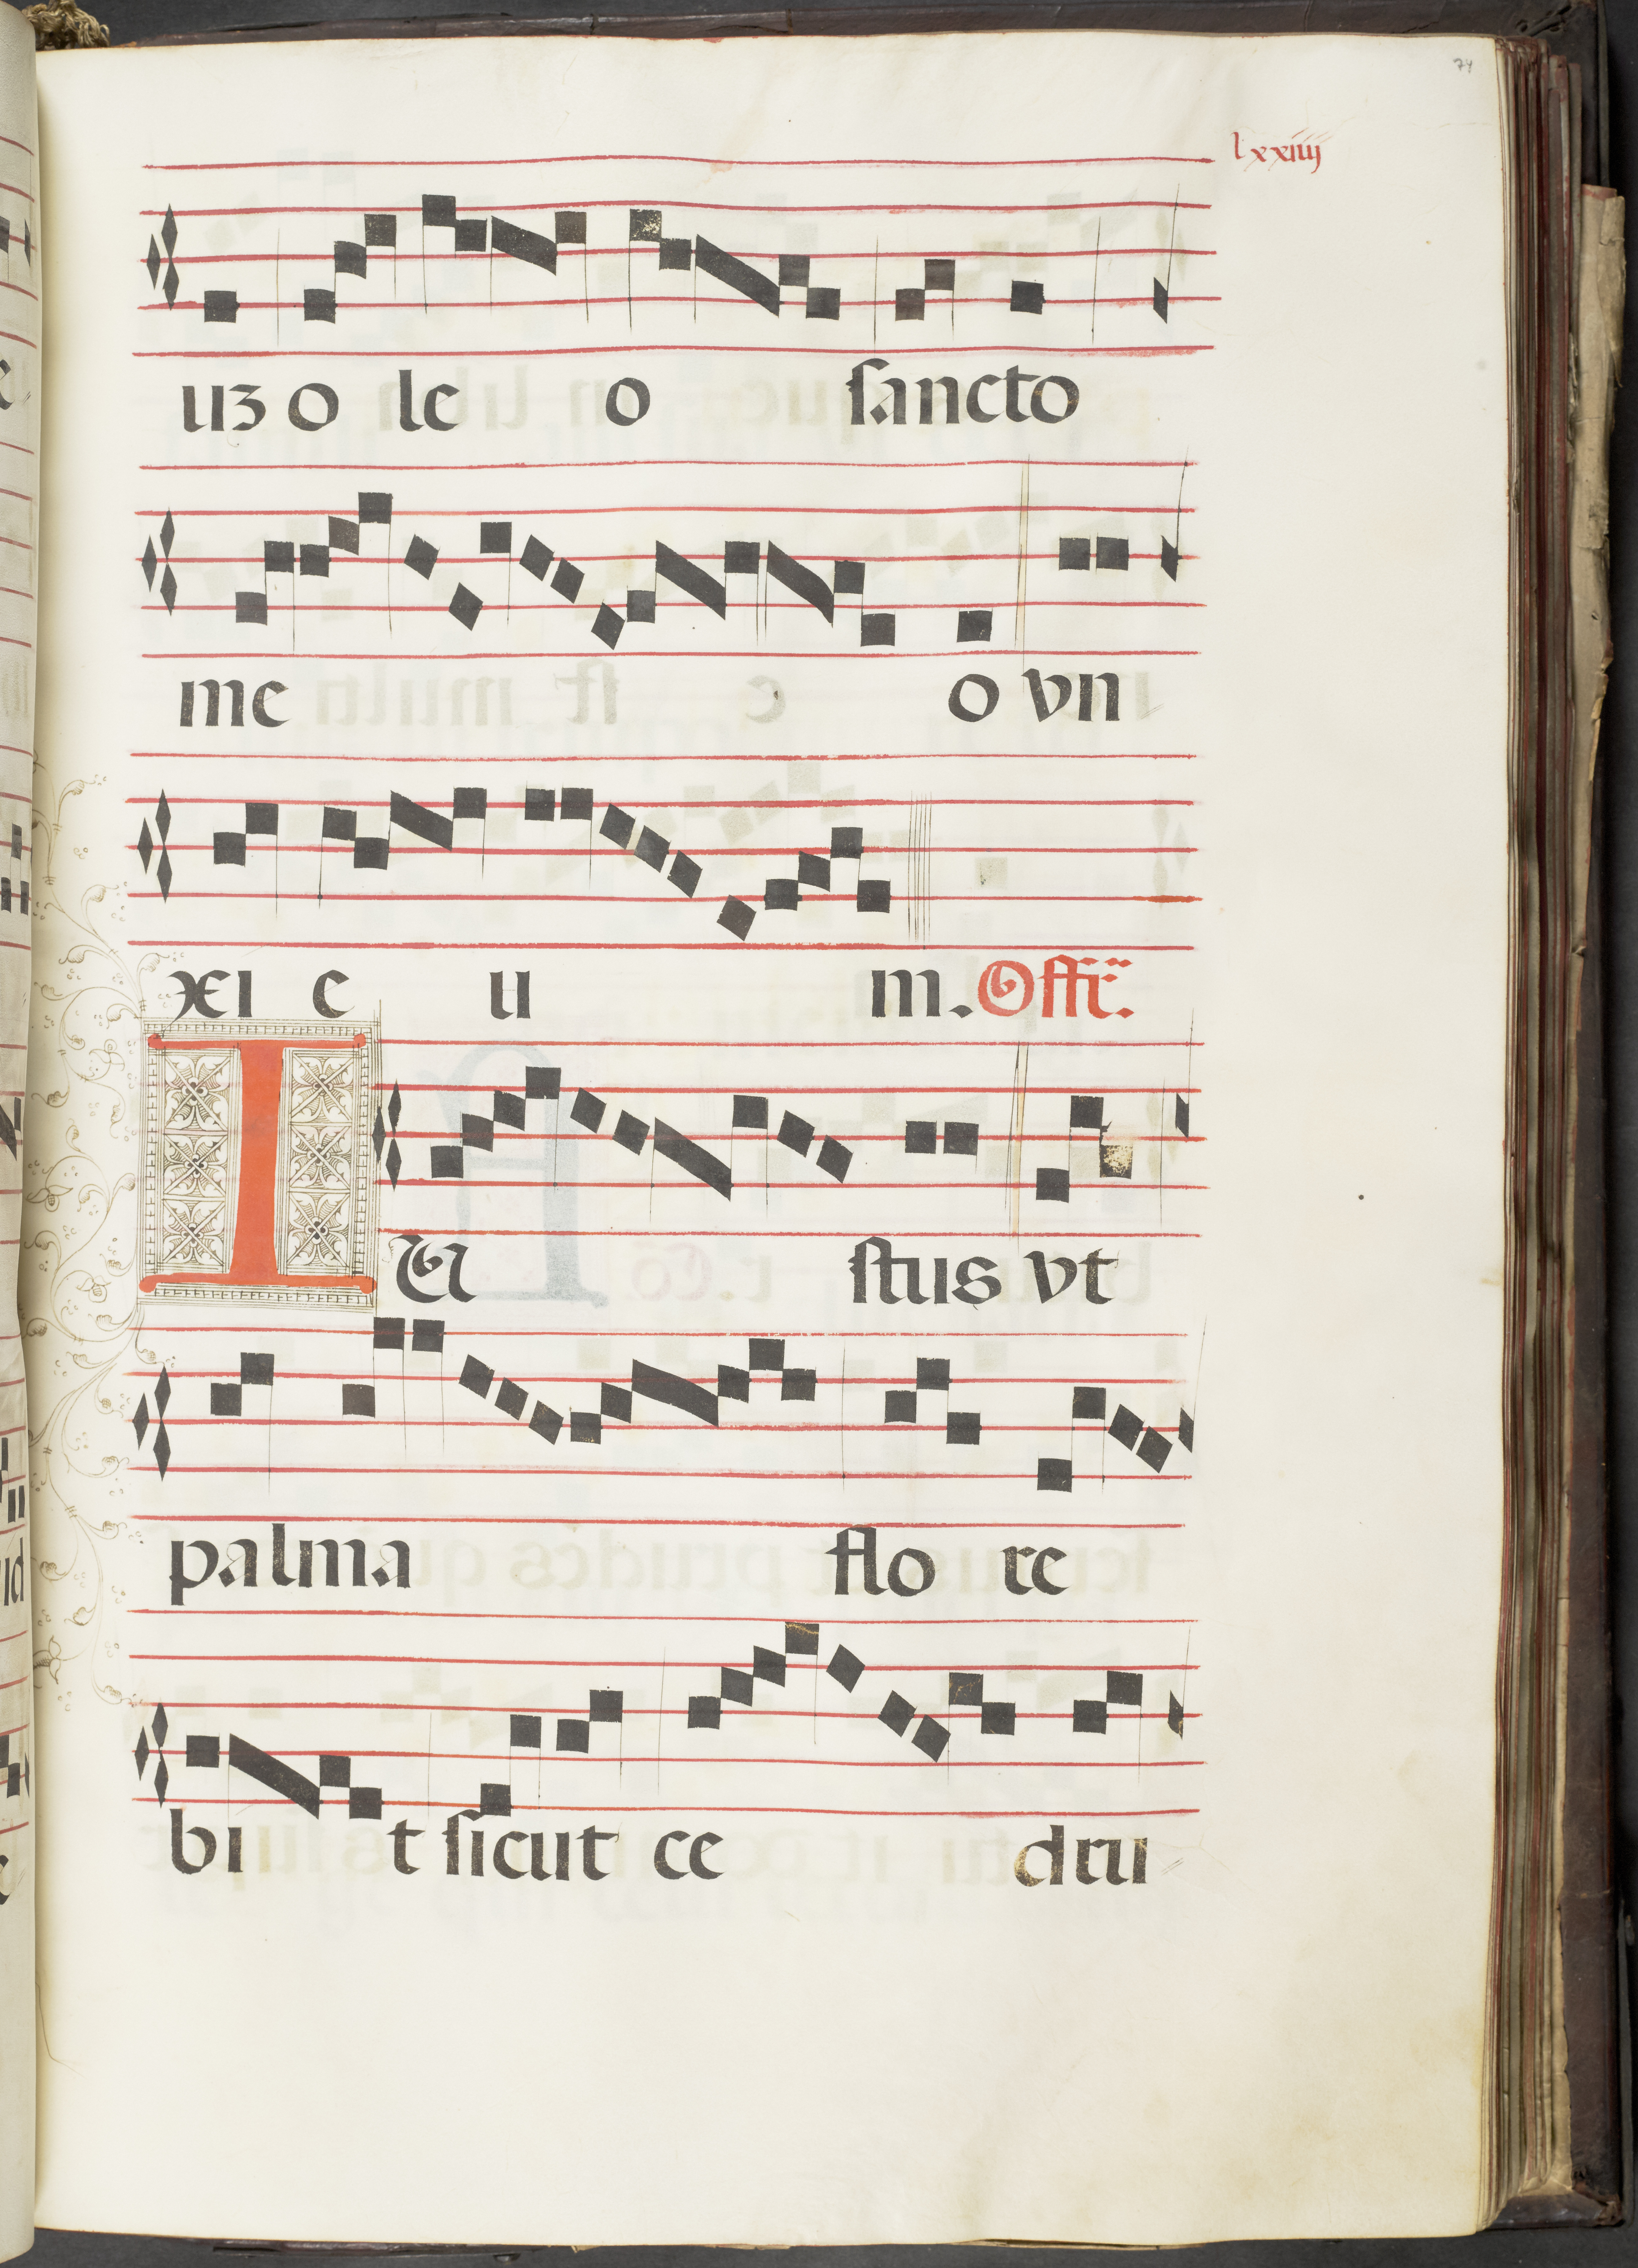 74
lxxiiij
uʒ o le o sancto
me o vn
xi e u m. Offr̄.
I U stus vt
palma flo re
bi t sicut ce dru